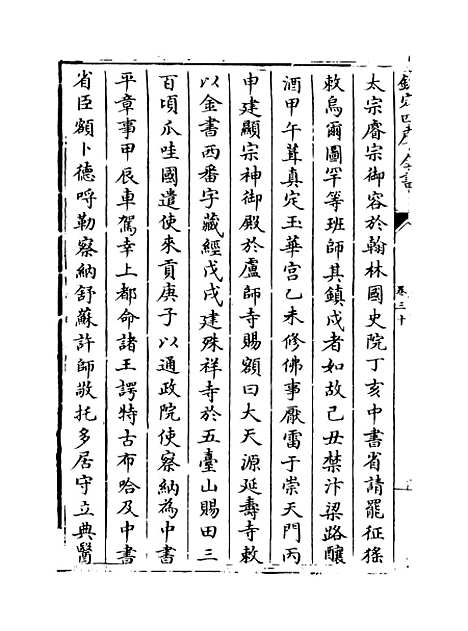 欽定四庫全書
卷三十
太宗睿宗御容於翰林國史院丁亥中書省請罷征猺
敕烏爾圖罕等班師其鎮戍者如故己丑禁汴梁路釀
酒甲午葺真定玉華宮乙未修佛事厭雷于崇天門丙
申建顯宗神御殿於盧師寺賜額曰大天源延壽寺敕
以金書西番字藏經戊戌建殊祥寺於五臺山賜田三
百頃爪哇國遣使來貢庚子以通政院使察納為中書
平章事甲辰車駕幸上都命諸王諤特古布哈及中書
省臣額卜德呼勒察納舒蘇許師敬托多居守立典醫